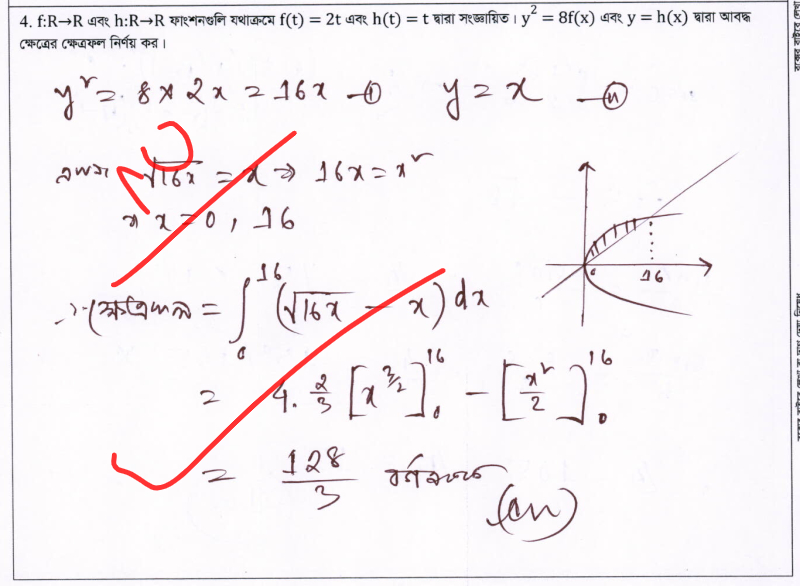 4. f:R→R এবং h:R→R ফাংশনগুলি যথাক্রমে f(t) = 2t এবং h(t) = t দ্বারা সংজ্ঞায়িত। y² = 8f(x) এবং y = h(x) দ্বারা আবদ্ধ
ক্ষেত্রের ক্ষেত্রফল নির্ণয় কর।
y² = 8 × 2x = 16x —① y = x —②
এখন √16x = x ⇒ 16x = x²
⇒ x = 0, 16
∴ ক্ষেত্রফল = ∫₀¹⁶ (√16x - x) dx
= 4. 2/3 [x^3/2]₀¹⁶ - [x²/2]₀¹⁶
= 128/3 বর্গএকক
(Ans)
0 16